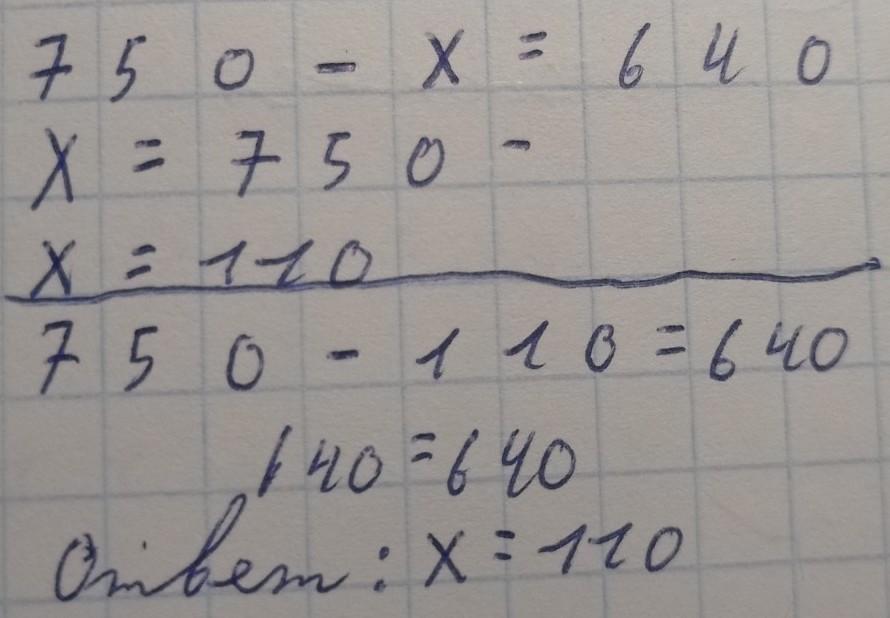 750 - x = 640
x = 750 -
x = 110
750 - 110 = 640
640 = 640
Ответ: x = 110